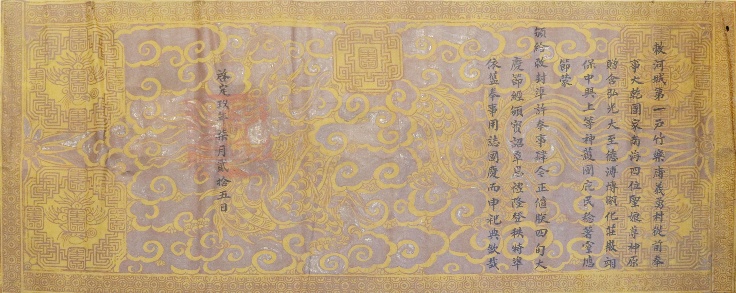 敕河城第一戶竹樂庸義勇村從前奉
事大乾國家南海四位聖娘尊神原
贈含弘光大至德溥博顯化莊徽翊
保中興上等神護國庇民稔著靈應
節蒙
頒給敕封準許奉事肆今正值朕四旬大
慶節經頒寶詔覃恩禮隆登秩特準
依舊奉事用誌國慶而申祀典欽哉
啓定玖年柒月貳拾五日